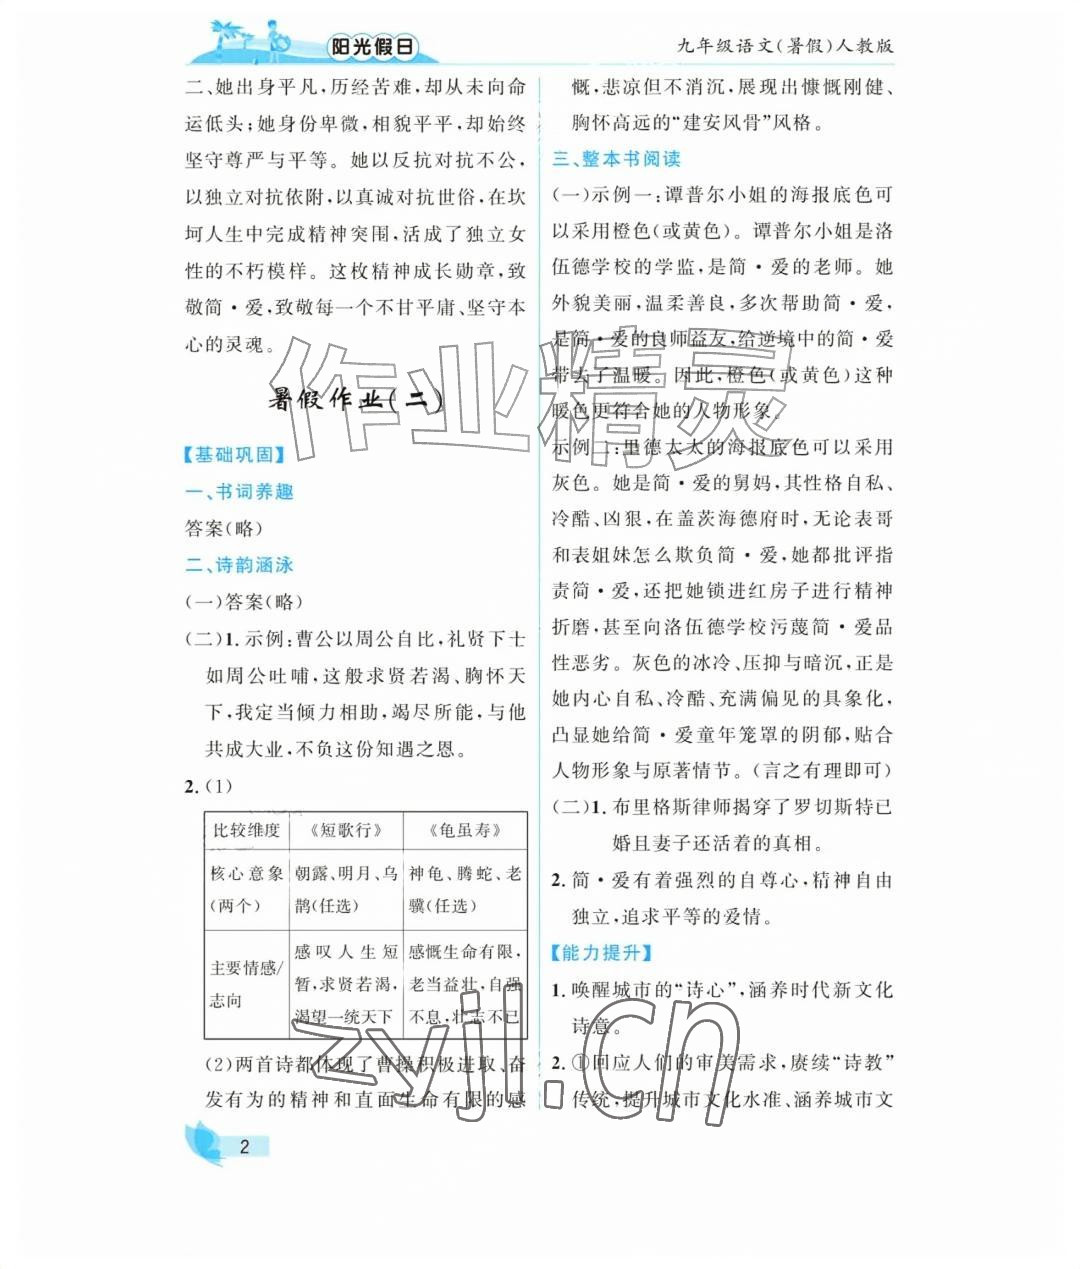 阳光假日
九年级语文(暑假)人教版
二、她出身平凡,历经苦难,却从未向命
运低头;她身份卑微,相貌平平,却始终
坚守尊严与平等。她以反抗对抗不公,
以独立对抗依附,以真诚对抗世俗,在坎
坷人生中完成精神突围,活成了独立女
性的不朽模样。这枚精神成长勋章,致
敬简·爱,致敬每一个不甘平庸、坚守本
心的灵魂。
暑假作业(二)
【基础巩固】
一、书词养趣
答案(略)
二、诗韵涵泳
(一)答案(略)
(二)1.示例:曹公以周公自比,礼贤下士
如周公吐哺,这般求贤若渴、胸怀天
下,我定当倾力相助,竭尽所能,与他
共成大业,不负这份知遇之恩。
2.(1)
比较维度 《短歌行》 《龟虽寿》
核心意象 朝露、明月、乌 神龟、腾蛇、老
(两个) 鹊(任选) 骥(任选)
感叹人生短 感慨生命有限,
主要情感/ 暂,求贤若渴, 老当益壮,自强
志向 渴望一统天下 不息,壮志不已
(2)两首诗都体现了曹操积极进取、奋
发有为的精神和直面生命有限的感
慨,悲凉但不消沉,展现出慷慨刚健、
胸怀高远的“建安风骨”风格。
三、整本书阅读
(一)示例一:谭普尔小姐的海报底色可
以采用橙色(或黄色)。谭普尔小姐是洛
伍德学校的学监,是简·爱的老师。她
外貌美丽,温柔善良,多次帮助简·爱,
是简·爱的良师益友,给逆境中的简·爱
带去了温暖。因此,橙色(或黄色)这种
暖色更符合她的人物形象。
示例二:里德太太的海报底色可以采用
灰色。她是简·爱的舅妈,其性格自私、
冷酷、凶狠,在盖茨海德府时,无论表哥
和表姐妹怎么欺负简·爱,她都批评指
责简·爱,还把她锁进红房子进行精神
折磨,甚至向洛伍德学校污蔑简·爱品
性恶劣。灰色的冰冷、压抑与暗沉,正是
她内心自私、冷酷、充满偏见的具象化,
凸显她给简·爱童年笼罩的阴郁,贴合
人物形象与原著情节。(言之有理即可)
(二)1.布里格斯律师揭穿了罗切斯特已
婚且妻子还活着的真相。
2.简·爱有着强烈的自尊心,精神自由
独立,追求平等的爱情。
【能力提升】
1.唤醒城市的“诗心”,涵养时代新文化
诗意。
2.①回应人们的审美需求,赓续“诗教”
传统,提升城市文化水准、涵养城市文
2
作业精灵
zyjl.cn